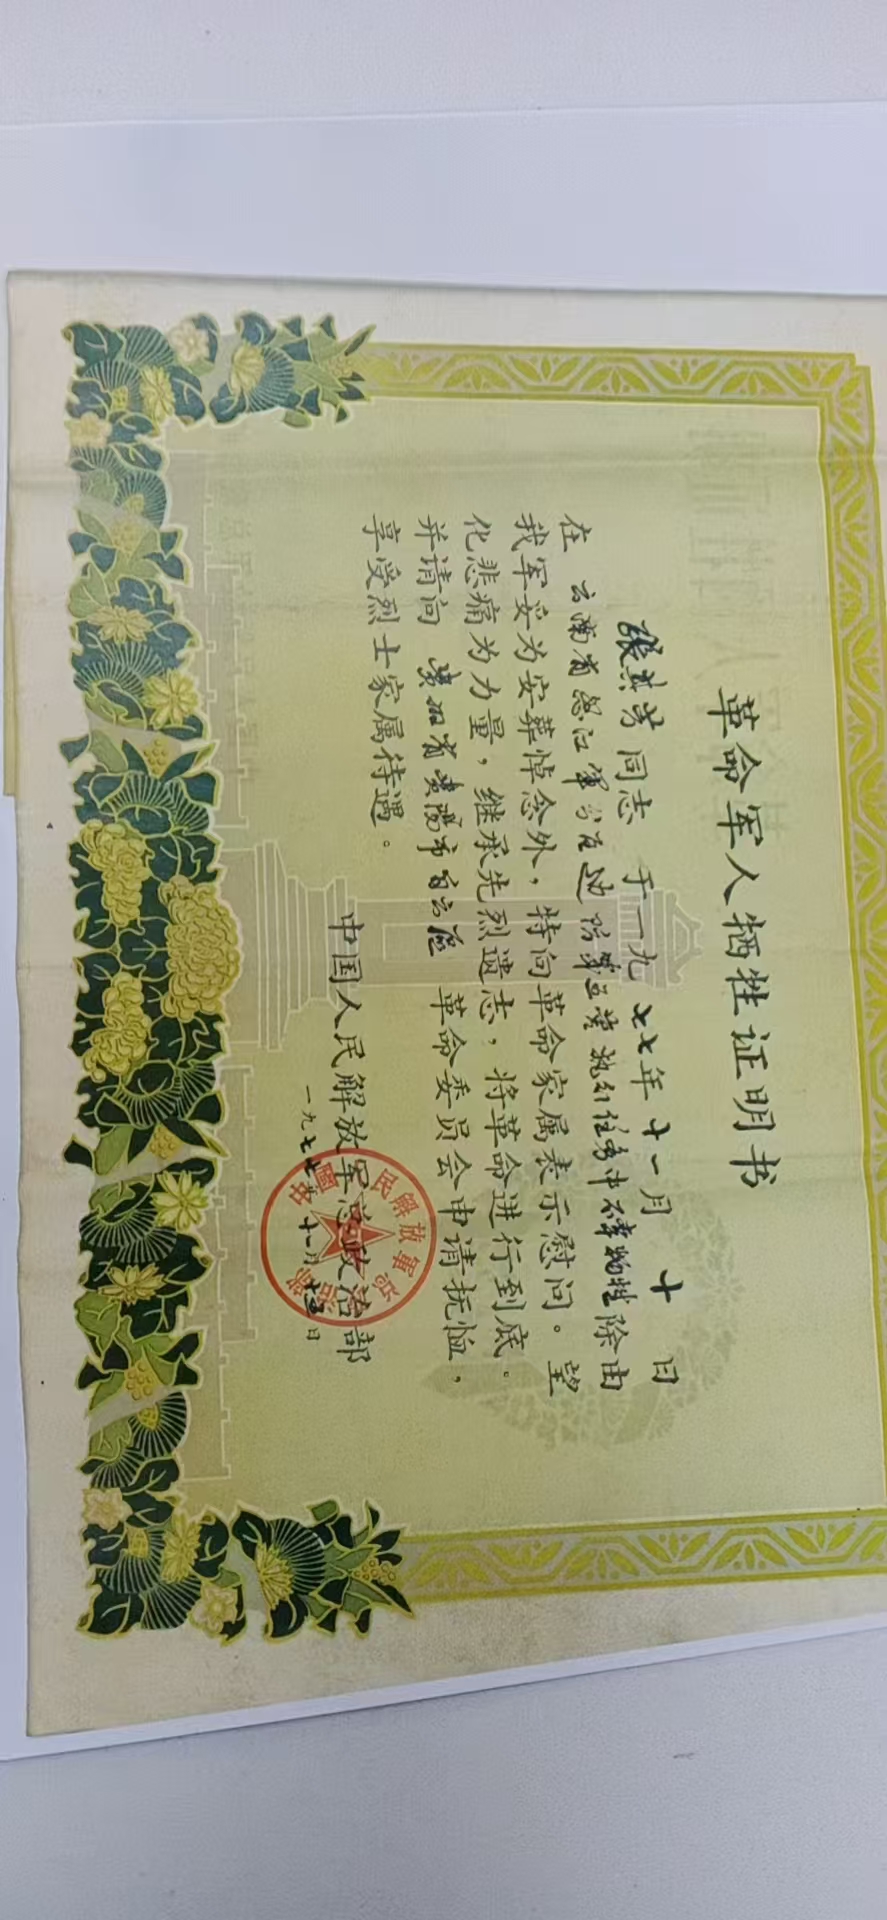 革命军人牺牲证明书
张其芳同志 于一九七七年十一月 十 日
在云南省怒江军分区边防第五营执行任务中不幸牺牲除由
我军妥为安葬悼念外，特向革命家属表示慰问。望
化悲痛为力量，继承先烈遗志，将革命进行到底。
并请向 贵州省贵阳市白云区 革命委员会申请抚恤，
享受烈士家属待遇。
中国人民解放军总政治部
一九七七年十一月 日